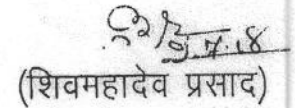 (शिवमहादेव प्रसाद)